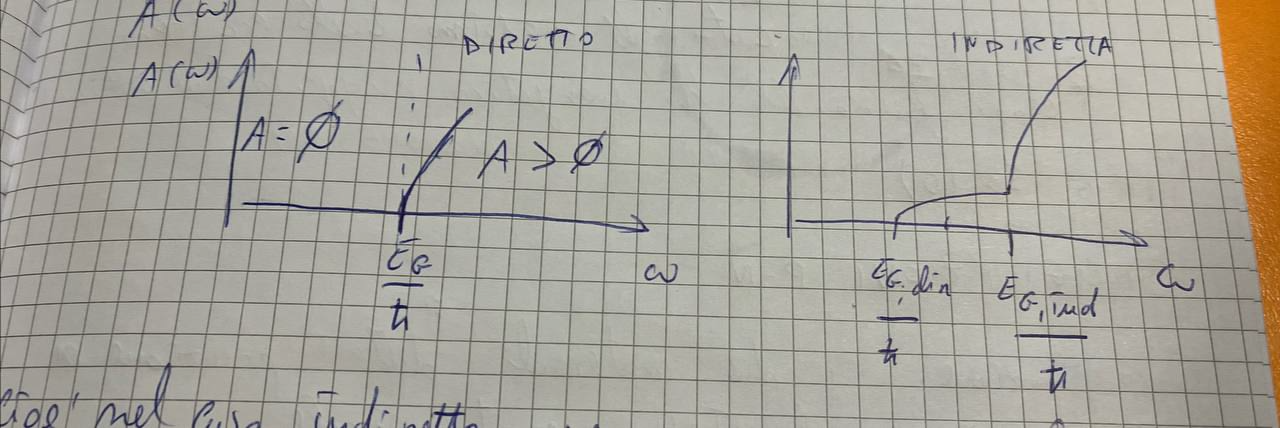 A(ω)
A(ω)
DIRETTO
A = ∅
A > ∅
E_G/ħ
ω
INDIRETTA
E_G,dir/ħ
E_G,ind/ħ
ω
cioè nel caso indiretto